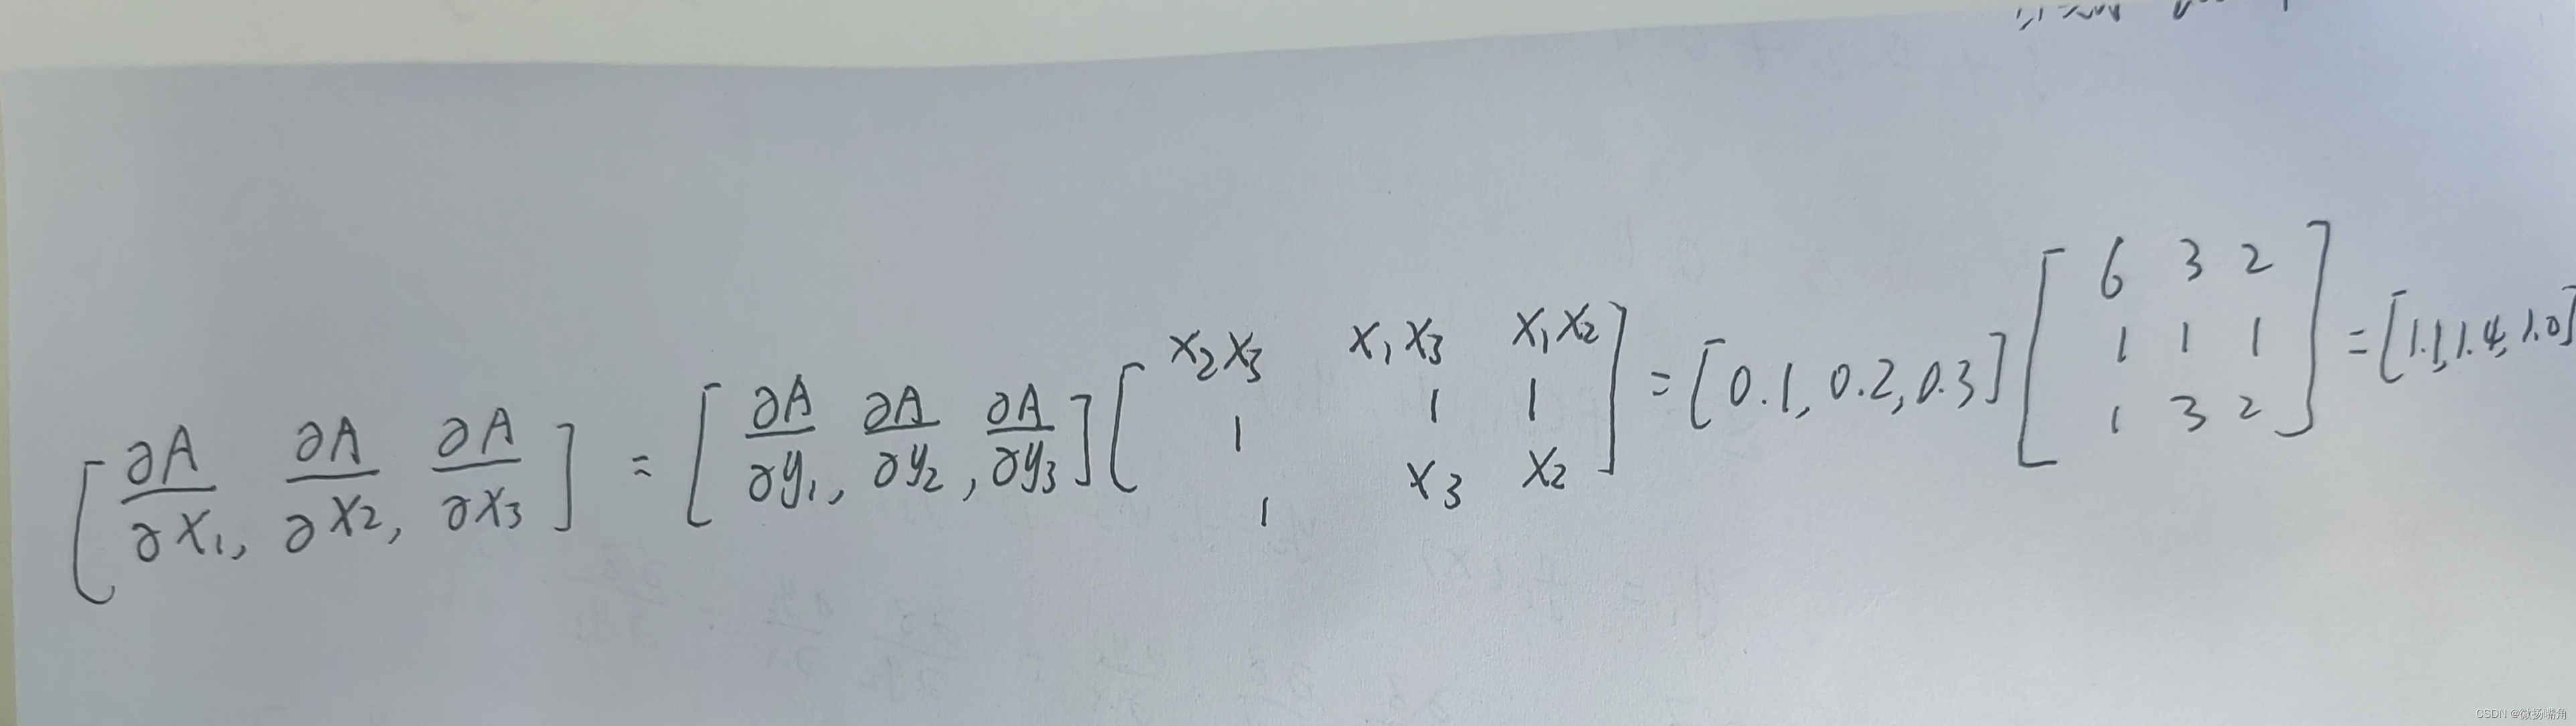 [∂A/∂x₁, ∂A/∂x₂, ∂A/∂x₃] = [∂A/∂y₁, ∂A/∂y₂, ∂A/∂y₃] [x₂x₃ x₁x₃ x₁x₂; 1 1 1; 1 x₃ x₂] = [0.1, 0.2, 0.3] [6 3 2; 1 1 1; 1 3 2] = [1.1, 1.4, 1.0]
CSDN @微扬嘴角